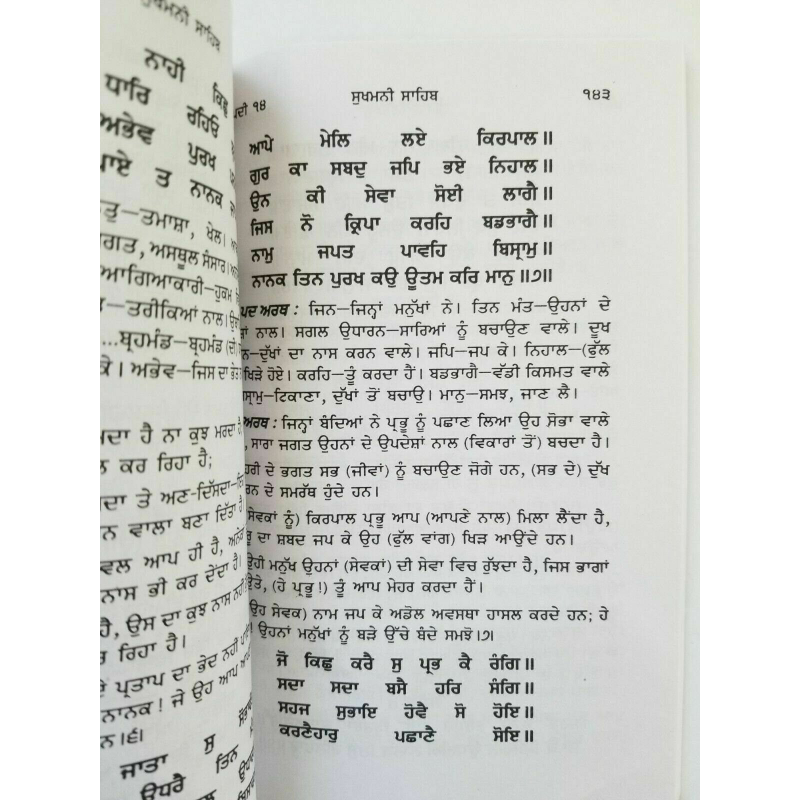 ਸੁਖਮਨੀ ਸਾਹਿਬ
ਨਾਹੀ ਕਿਛੁ
ਧਾਰਿ ਰਹਿਓ
ਅਭੇਵ ਪੁਰਖ
ਤ ਨਾਨਕ
ਤਮਾਸ਼ਾ, ਖੇਲ।
ਅਸਥੂਲ ਸੰਸਾਰ।
ਆਗਿਆਕਾਰੀ—ਹੁਕਮ
—ਤਰੀਕਿਆਂ ਨਾਲ।
...ਬ੍ਰਹਮੰਡ—ਬ੍ਰਹਮੰਡ
ਕੇ। ਅਭੇਵ—ਜਿਸ ਦਾ ਭੇਤ
ਹੈ ਨਾ ਕੁਝ ਮਰਦਾ ਹੈ
ਕਰ ਰਿਹਾ ਹੈ;
ਤੇ ਅਣ-ਦਿੱਸਦਾ—
ਵਾਲਾ ਬਣਾ ਦਿੱਤਾ ਹੈ
ਆਪ ਹੀ ਹੈ,
ਨਾਸ ਭੀ ਕਰ ਦੇਂਦਾ ਹੈ।
ਹੈ, ਉਸ ਦਾ ਕੁਝ ਨਾਸ ਨਹੀਂ
ਰਿਹਾ ਹੈ।
ਪ੍ਰਤਾਪ ਦਾ ਭੇਦ ਨਹੀ
ਨਾਨਕ! ਜੇ ਉਹ ਆਪ
ਨ।੬।
ਜਾਤਾ ਸੁ
ਉਧਰੈ ਤਿਨ
ਪਦੀ ੧੪ ਸੁਖਮਨੀ ਸਾਹਿਬ ੧੪੩
ਆਪੇ ਮੇਲਿ ਲਏ ਕਿਰਪਾਲ॥
ਗੁਰ ਕਾ ਸਬਦੁ ਜਪਿ ਭਏ ਨਿਹਾਲ॥
ਉਨ ਕੀ ਸੇਵਾ ਸੋਈ ਲਾਗੈ॥
ਜਿਸ ਨੋ ਕ੍ਰਿਪਾ ਕਰਹਿ ਬਡਭਾਗੈ॥
ਨਾਮੁ ਜਪਤ ਪਾਵਹਿ ਬਿਸ੍ਰਾਮੁ॥
ਨਾਨਕ ਤਿਨ ਪੁਰਖ ਕਉ ਊਤਮ ਕਰਿ ਮਾਨੁ॥੭॥
ਪਦ ਅਰਥ : ਜਿਨ—ਜਿਨ੍ਹਾਂ ਮਨੁੱਖਾਂ ਨੇ। ਤਿਨ ਮੰਤ—ਉਹਨਾਂ ਦੇ
ਨਾਲ। ਸਗਲ ਉਧਾਰਨ—ਸਾਰਿਆਂ ਨੂੰ ਬਚਾਉਣ ਵਾਲੇ। ਦੂਖ
ਨ—ਦੁੱਖਾਂ ਦਾ ਨਾਸ ਕਰਨ ਵਾਲੇ। ਜਪਿ—ਜਪ ਕੇ। ਨਿਹਾਲ—(ਫੁੱਲ
ਖਿੜੇ ਹੋਏ। ਕਰਹਿ—ਤੂੰ ਕਰਦਾ ਹੈਂ। ਬਡਭਾਗੈ—ਵੱਡੀ ਕਿਸਮਤ ਵਾਲੇ
ਸ੍ਰਾਮੁ—ਟਿਕਾਣਾ, ਦੁੱਖਾਂ ਤੋਂ ਬਚਾਉ। ਮਾਨੁ—ਸਮਝ, ਜਾਣ ਲੈ।
ਅਰਥ : ਜਿਨ੍ਹਾਂ ਬੰਦਿਆਂ ਨੇ ਪ੍ਰਭੂ ਨੂੰ ਪਛਾਣ ਲਿਆ ਉਹ ਸੋਭਾ ਵਾਲੇ
, ਸਾਰਾ ਜਗਤ ਉਹਨਾਂ ਦੇ ਉਪਦੇਸ਼ਾਂ ਨਾਲ (ਵਿਕਾਰਾਂ ਤੋਂ) ਬਚਦਾ ਹੈ।
ਹਰੀ ਦੇ ਭਗਤ ਸਭ (ਜੀਵਾਂ) ਨੂੰ ਬਚਾਉਣ ਜੋਗੇ ਹਨ, (ਸਭ ਦੇ) ਦੁੱਖ
ਰਨ ਦੇ ਸਮਰੱਥ ਹੁੰਦੇ ਹਨ।
ਸੇਵਕਾਂ ਨੂੰ) ਕਿਰਪਾਲ ਪ੍ਰਭੂ ਆਪ (ਆਪਣੇ ਨਾਲ) ਮਿਲਾ ਲੈਂਦਾ ਹੈ,
ਰੂ ਦਾ ਸ਼ਬਦ ਜਪ ਕੇ ਉਹ (ਫੁੱਲ ਵਾਂਗ) ਖਿੜ ਆਉਂਦੇ ਹਨ।
ਉਹੀ ਮਨੁੱਖ ਉਹਨਾਂ (ਸੇਵਕਾਂ) ਦੀ ਸੇਵਾ ਵਿਚ ਰੁੱਝਦਾ ਹੈ, ਜਿਸ ਭਾਗਾਂ
ਉਤੇ, (ਹੇ ਪ੍ਰਭੂ!) ਤੂੰ ਆਪ ਮੇਹਰ ਕਰਦਾ ਹੈਂ।
ਉਹ ਸੇਵਕ) ਨਾਮ ਜਪ ਕੇ ਅਡੋਲ ਅਵਸਥਾ ਹਾਸਲ ਕਰਦੇ ਹਨ; ਹੇ
ਉਹਨਾਂ ਮਨੁੱਖਾਂ ਨੂੰ ਬੜੇ ਉੱਚੇ ਬੰਦੇ ਸਮਝੋ।੭।
ਜੋ ਕਿਛੁ ਕਰੈ ਸੁ ਪ੍ਰਭ ਕੈ ਰੰਗਿ॥
ਸਦਾ ਸਦਾ ਬਸੈ ਹਰਿ ਸੰਗਿ॥
ਸਹਜ ਸੁਭਾਇ ਹੋਵੈ ਸੋ ਹੋਇ॥
ਕਰਣੈਹਾਰੁ ਪਛਾਣੈ ਸੋਇ॥